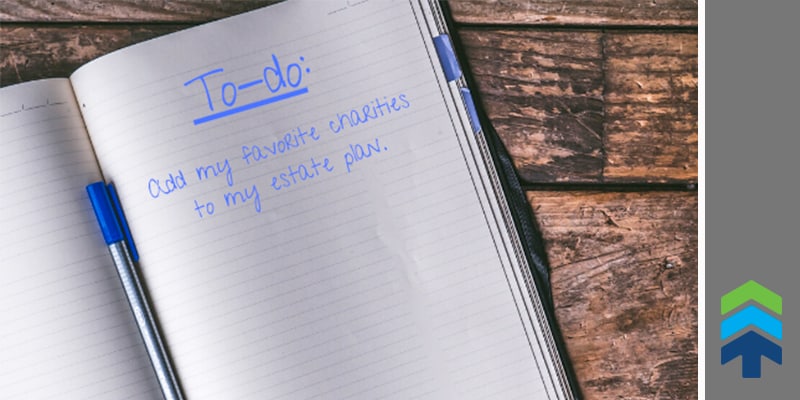 To-do:
add my favorite charities
to my estate plan.